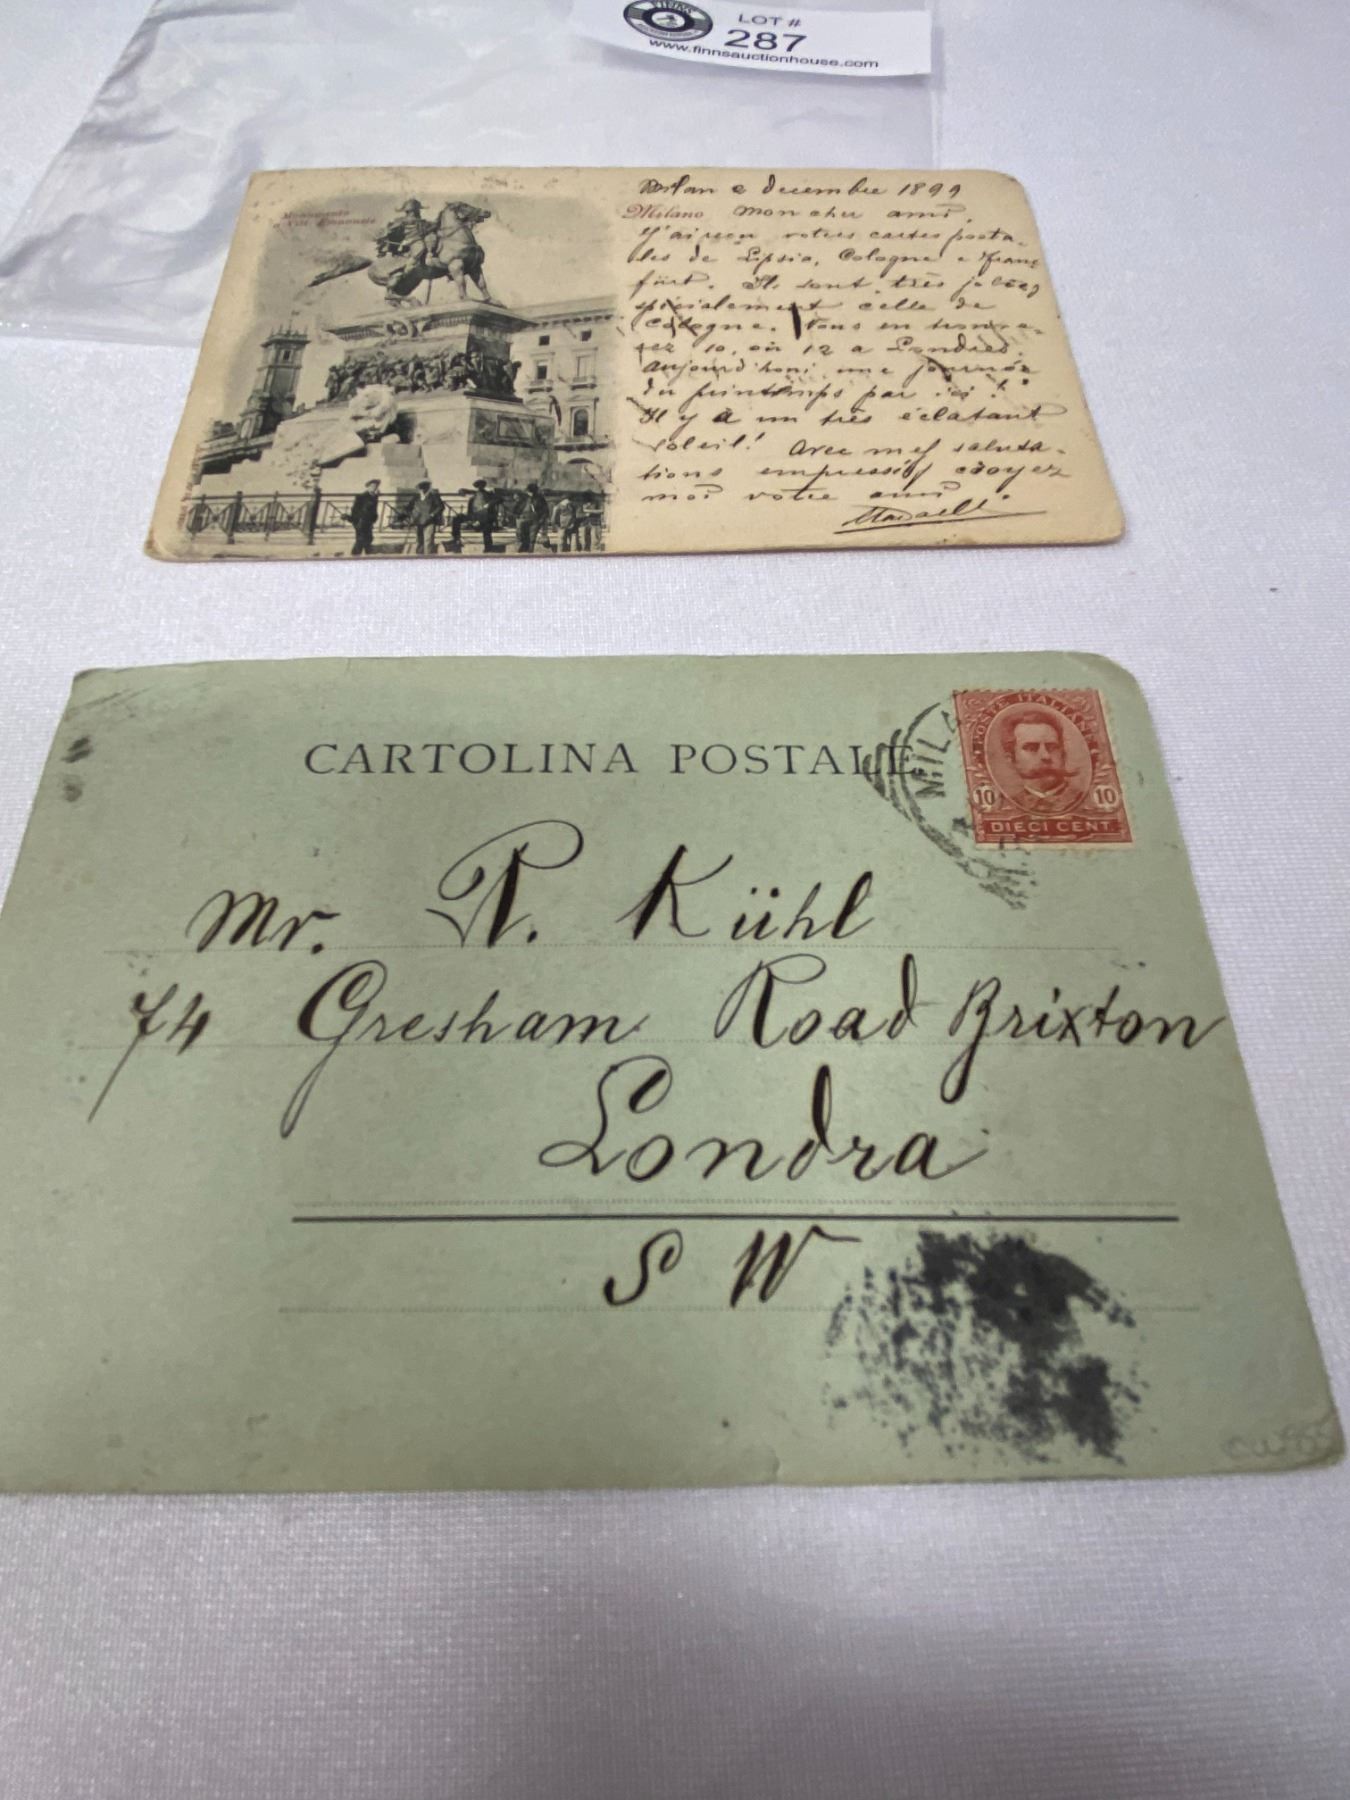 LOT #
287
www.finnsauctionhouse.com
Monumento
a Vitt. Emanuele
Milano
decembre 1899
Mon cher ami,
J'ai reçu votres cartes posta-
les de Lipsia, Cologne e Franc
fürt. Ils sont très jolies
spécialement celle de
Cologne. Vous en
10, où 12 a Londres.
aujourd'houi une journée
du printemps par ici!
Il y à un très éclatant
soleil! Avec mes saluta-
tions empressés croyez
moi votre ami
CARTOLINA POSTALE
POSTE ITALIANE
10 10
DIECI CENT.
Mr. P. Kühl
74 Gresham Road Brixton
Londra
S W